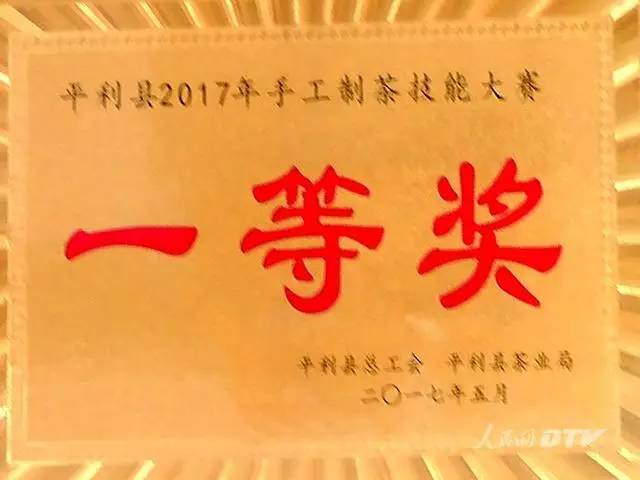 平利县2017年手工制茶技能大赛
一等奖
平利县总工会 平利县茶业局
二〇一七年五月
人民网DTV